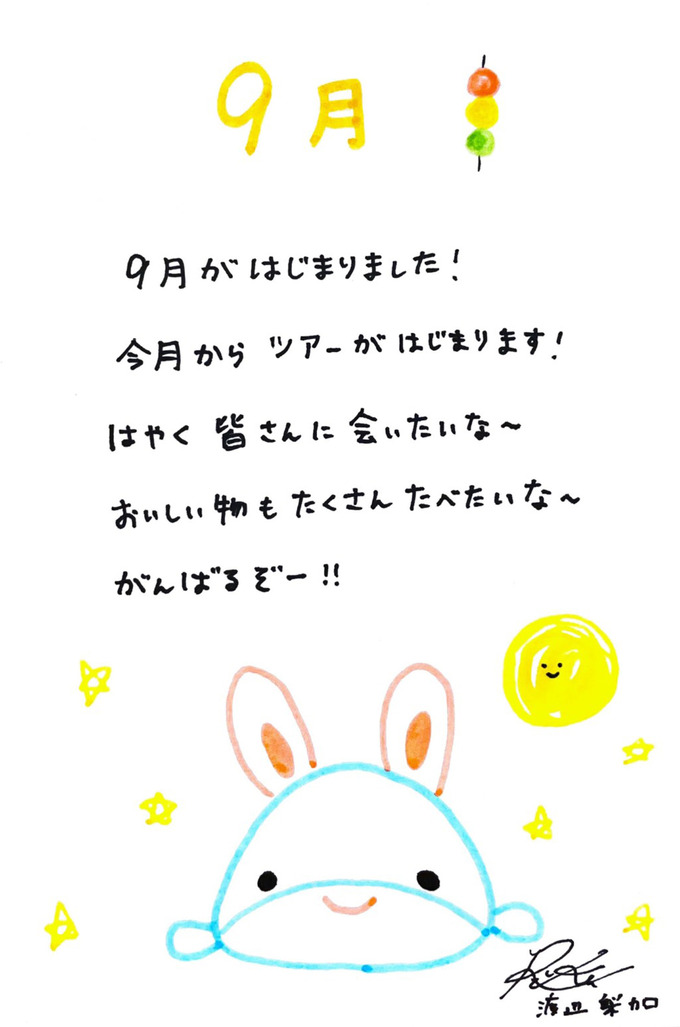 9月
9月がはじまりました!
今月からツアーがはじまります!
はやく皆さんに会いたいな～
おいしい物もたくさんたべたいな～
がんばるぞー!!
渡辺梨加